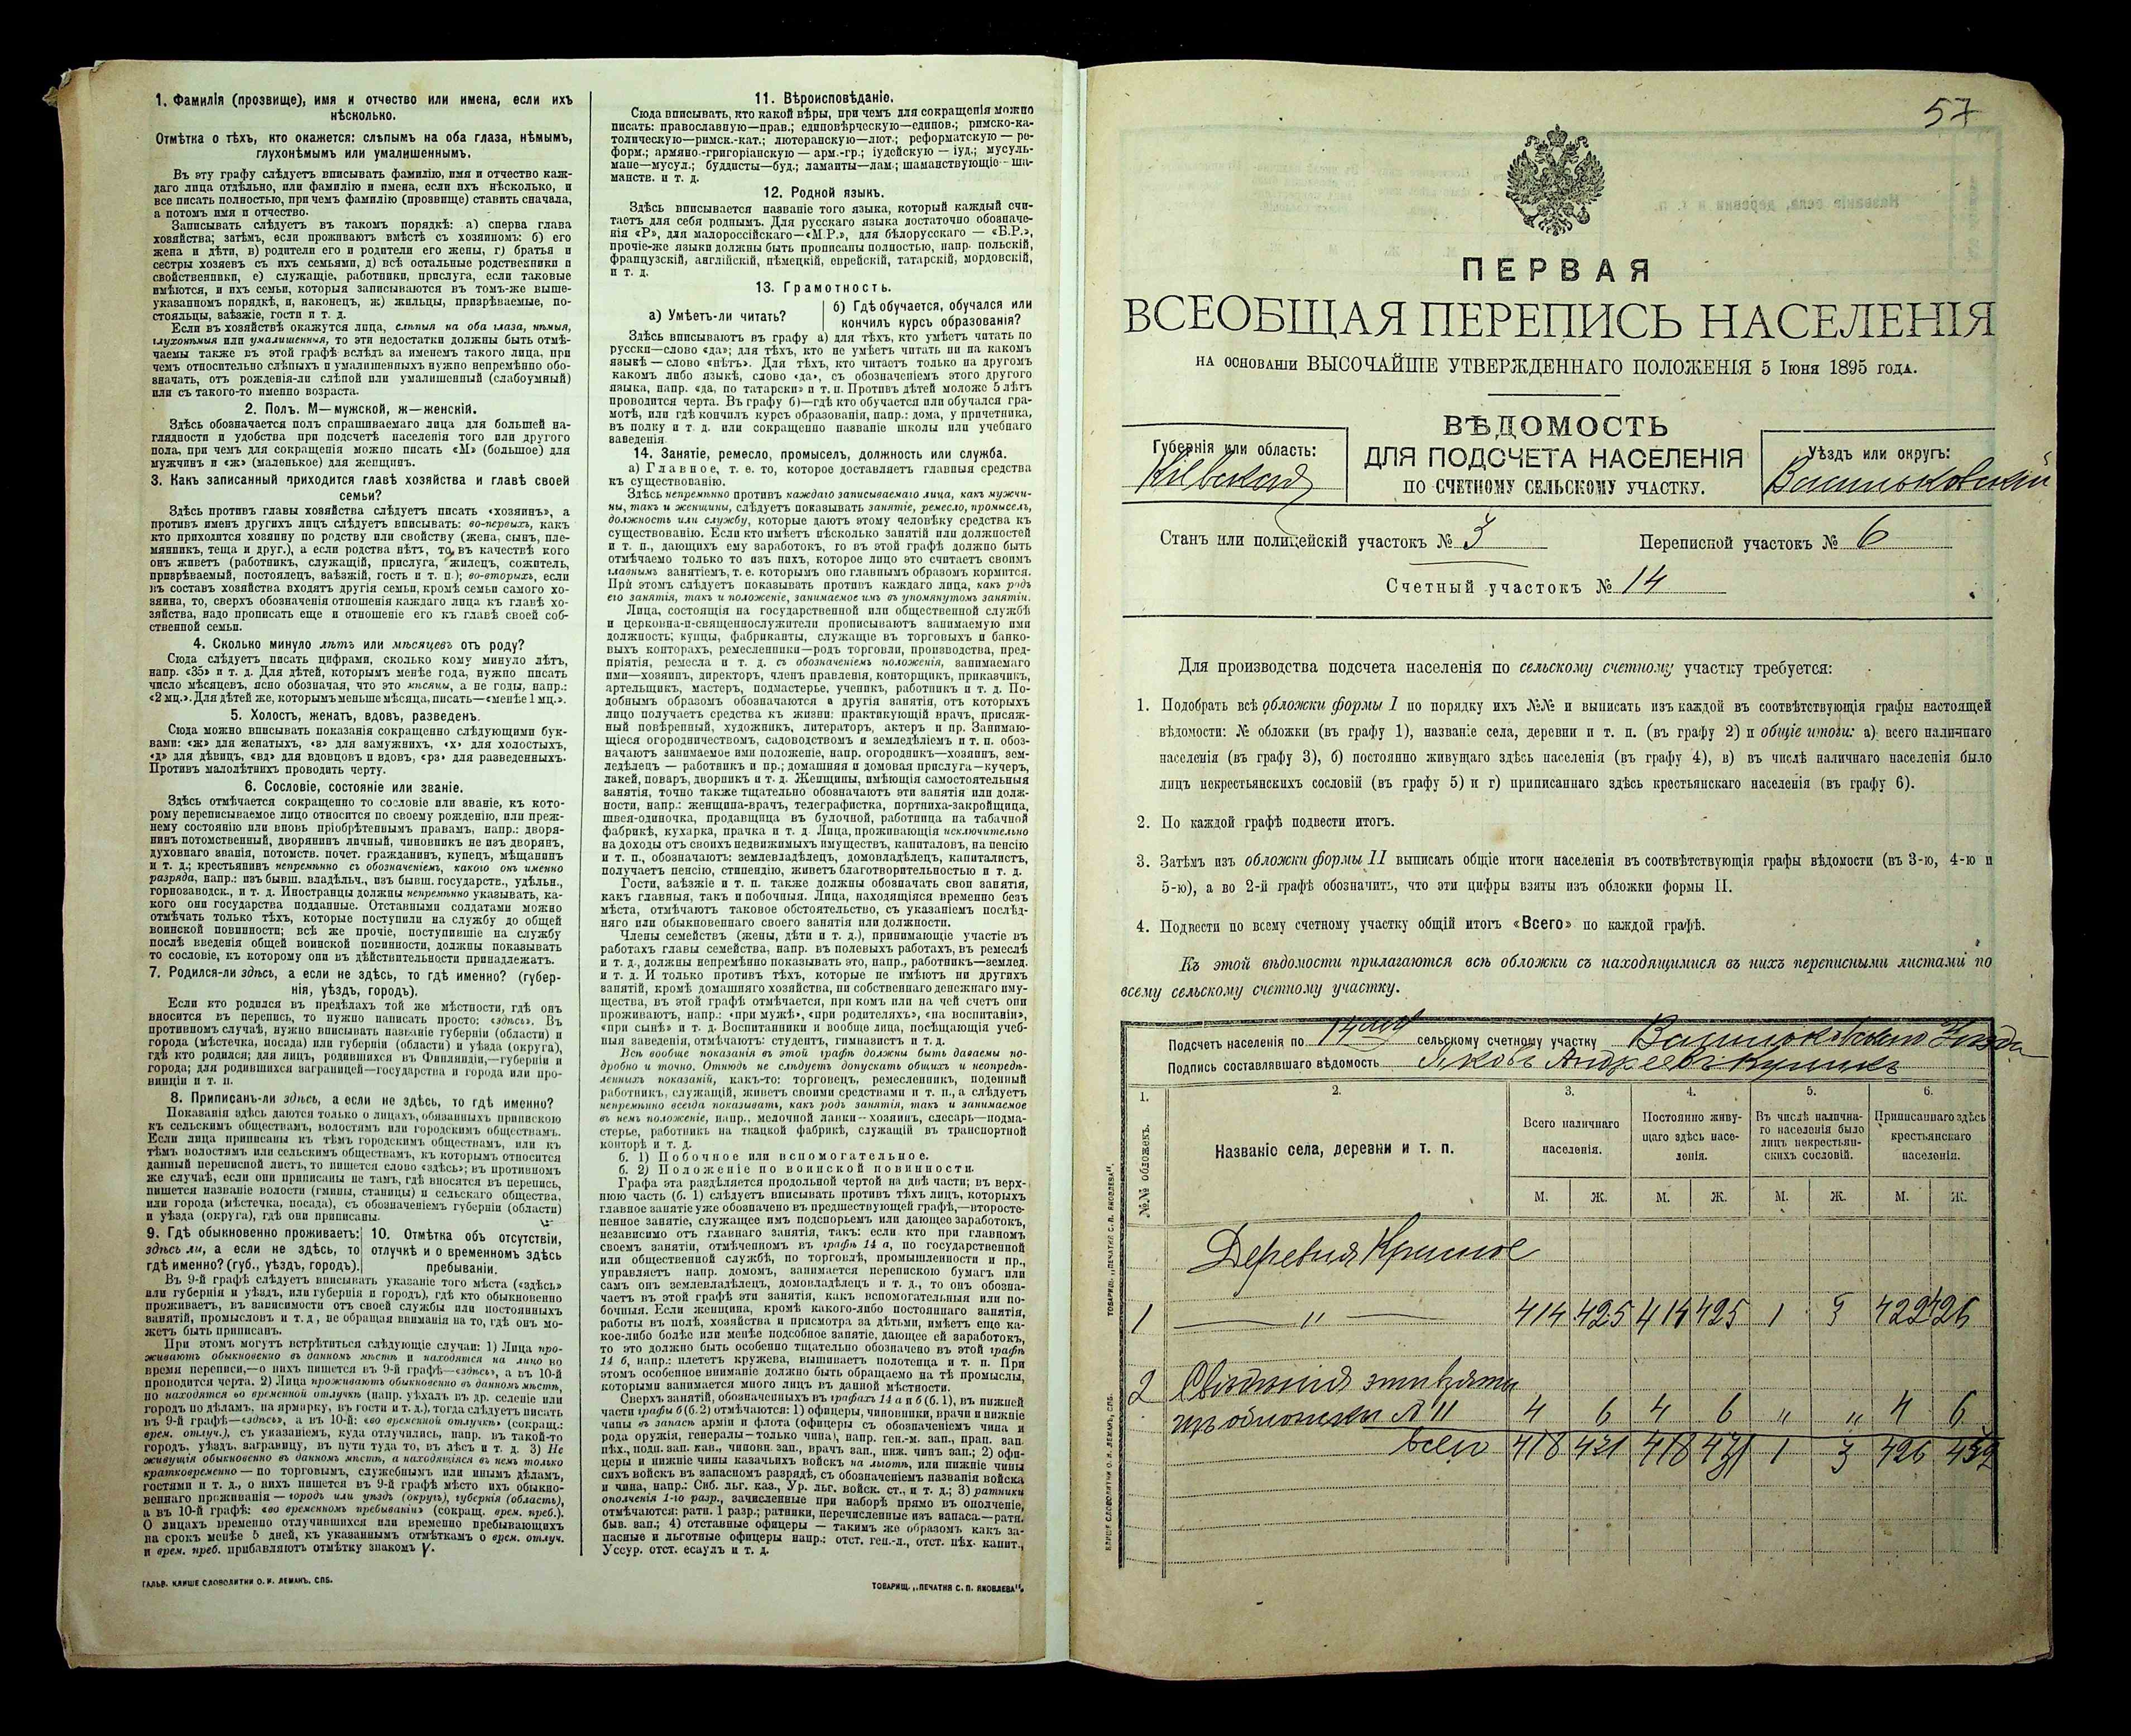 1. Фамилія (прозвище), имя и отчество или имена, если ихъ
нѣсколько.
Отмѣтка о тѣхъ, кто окажется: слѣпымъ на оба глаза, нѣмымъ,
глухонѣмымъ или умалишеннымъ.
Въ эту графу слѣдуетъ вписывать фамилію, имя и отчество каж-
даго лица отдѣльно, или фамилію и имена, если ихъ нѣсколько, и
все писать полностью, при чемъ фамилію (прозвище) ставить сначала,
а потомъ имя и отчество.
Записывать слѣдуетъ въ такомъ порядкѣ: а) сперва глава
хозяйства; затѣмъ, если проживаютъ вмѣстѣ съ хозяиномъ: б) его
жена и дѣти, в) родители его и родители его жены, г) братья и
сестры хозяевъ съ ихъ семьями, д) всѣ остальные родственники и
свойственники, е) служащіе, работники, прислуга, если таковые
имѣются, и ихъ семьи, которыя записываются въ томъ-же выше-
указанномъ порядкѣ, и, наконецъ, ж) жильцы, призрѣваемые, по-
стояльцы, заѣзжіе, гости и т. д.
Если въ хозяйствѣ окажутся лица, слѣпыя на оба глаза, нѣмыя,
глухонѣмыя или умалишенныя, то эти недостатки должны быть отмѣ-
чаемы также въ этой графѣ вслѣдъ за именемъ такого лица, при
чемъ относительно слѣпыхъ и умалишенныхъ нужно непремѣнно обо-
значать, отъ рожденія-ли слѣпой или умалишенный (слабоумный)
или съ такого-то именно возраста.
2. Полъ. М—мужской, ж—женскій.
Здѣсь обозначается полъ спрашиваемаго лица для большей на-
глядности и удобства при подсчетѣ населенія того или другого
пола, при чемъ для сокращенія можно писать «М» (большое) для
мужчинъ и «ж» (маленькое) для женщинъ.
3. Какъ записанный приходится главѣ хозяйства и главѣ своей
семьи?
Здѣсь противъ главы хозяйства слѣдуетъ писать «хозяинъ», а
противъ именъ другихъ лицъ слѣдуетъ вписывать: во-первыхъ, какъ
кто приходится хозяину по родству или свойству (жена, сынъ, пле-
мянникъ, теща и друг.), а если родства нѣтъ, то въ качествѣ кого
онъ живетъ (работникъ, служащій, прислуга, жилецъ, сожитель,
призрѣваемый, постоялецъ, заѣзжій, гость и т. п.); во-вторыхъ, если
въ составъ хозяйства входятъ другія семьи, кромѣ семьи самого хо-
зяина, то, сверхъ обозначенія отношенія каждаго лица къ главѣ хо-
зяйства, надо прописать еще и отношеніе его къ главѣ своей соб-
ственной семьи.
4. Сколько минуло лѣтъ или мѣсяцевъ отъ роду?
Сюда слѣдуетъ писать цифрами, сколько кому минуло лѣтъ,
напр. «35» и т. д. Для дѣтей, которымъ менѣе года, нужно писать
число мѣсяцевъ, ясно обозначая, что это мѣсяцы, а не годы, напр.:
«2 мц.». Для дѣтей же, которымъ меньше мѣсяца, писать—«менѣе 1 мц.».
5. Холостъ, женатъ, вдовъ, разведенъ.
Сюда можно вписывать показанія сокращенно слѣдующими бук-
вами: «ж» для женатыхъ, «з» для замужнихъ, «х» для холостыхъ,
«д» для дѣвицъ, «вд» для вдовцовъ и вдовъ, «рз» для разведенныхъ.
Противъ малолѣтнихъ проводить черту.
6. Сословіе, состояніе или званіе.
Здѣсь отмѣчается сокращенно то сословіе или званіе, къ кото-
рому переписываемое лицо относится по своему рожденію, или преж-
нему состоянію или вновь пріобрѣтеннымъ правамъ, напр.: дворя-
нинъ потомственный, дворянинъ личный, чиновникъ не изъ дворянъ,
духовнаго званія, потомств. почет. гражданинъ, купецъ, мѣщанинъ
и т. д.; крестьянинъ непремѣнно съ обозначеніемъ, какого онъ именно
разряда, напр.: изъ бывш. владѣльч., изъ бывш. государств., удѣльн.,
горнозаводск., и т. д. Иностранцы должны непремѣнно указывать, ка-
кого они государства подданные. Отставными солдатами можно
отмѣчать только тѣхъ, которые поступили на службу до общей
воинской повинности; всѣ же прочіе, поступившіе на службу
послѣ введенія общей воинской повинности, должны показывать
то сословіе, къ которому они въ дѣйствительности принадлежатъ.
7. Родился-ли здѣсь, а если не здѣсь, то гдѣ именно? (губер-
нія, уѣздъ, городъ).
Если кто родился въ предѣлахъ той же мѣстности, гдѣ онъ
вносится въ перепись, то нужно написать просто: «здѣсь». Въ
противномъ случаѣ, нужно вписывать названіе губерніи (области) и
города (мѣстечка, посада) или губерніи (области) и уѣзда (округа),
гдѣ кто родился; для лицъ, родившихся въ Финляндіи,—губерніи и
города; для родившихся заграницей—государства и города или про-
винціи и т. п.
8. Приписанъ-ли здѣсь, а если не здѣсь, то гдѣ именно?
Показанія здѣсь даются только о лицахъ, обязанныхъ припискою
къ сельскимъ обществамъ, волостямъ или городскимъ обществамъ.
Если лица приписаны къ тѣмъ городскимъ обществамъ, или къ
тѣмъ волостямъ или сельскимъ обществамъ, къ которымъ относится
данный переписной листъ, то пишется слово «здѣсь»; въ противномъ
же случаѣ, если они приписаны не тамъ, гдѣ вносятся въ перепись,
пишется названіе волости (гмины, станицы) и сельскаго общества,
или города (мѣстечка, посада), съ обозначеніемъ губерніи (области)
и уѣзда (округа), гдѣ они приписаны.
9. Гдѣ обыкновенно проживаетъ:
здѣсь ли, а если не здѣсь, то
гдѣ именно? (губ., уѣздъ, городъ).
10. Отмѣтка объ отсутствіи,
отлучкѣ и о временномъ здѣсь
пребываніи.
Въ 9-й графѣ слѣдуетъ вписывать указаніе того мѣста («здѣсь»
или губернія и уѣздъ, или губернія и городъ), гдѣ кто обыкновенно
проживаетъ, въ зависимости отъ своей службы или постоянныхъ
занятій, промысловъ и т. д., не обращая вниманія на то, гдѣ онъ мо-
жетъ быть приписанъ.
При этомъ могутъ встрѣтиться слѣдующіе случаи: 1) Лица про-
живаютъ обыкновенно въ данномъ мѣстѣ и находятся на лицо во
время переписи,—о нихъ пишется въ 9-й графѣ—«здѣсь», а въ 10-й
проводится черта. 2) Лица проживаютъ обыкновенно въ данномъ мѣстѣ,
но находятся во временной отлучкѣ (напр. уѣхалъ въ др. селеніе или
городъ по дѣламъ, на ярмарку, въ гости и т. д.), тогда слѣдуетъ писать
въ 9-й графѣ—«здѣсь», а въ 10-й: «во временной отлучкѣ» (сокращ.:
врем. отлуч.), съ указаніемъ, куда отлучились, напр. въ такой-то
городъ, уѣздъ, заграницу, въ пути туда то, въ лѣсъ и т. д. 3) Не
живущія обыкновенно въ данномъ мѣстѣ, а находящіяся въ немъ только
кратковременно — по торговымъ, служебнымъ или инымъ дѣламъ,
гостями и т. д., о нихъ пишется въ 9-й графѣ мѣсто ихъ обыкно-
веннаго проживанія — городъ или уѣздъ (округъ), губернія (область),
а въ 10-й графѣ: «во временномъ пребываніи» (сокращ. врем. преб.).
О лицахъ временно отлучившихся или временно пребывающихъ
на срокъ менѣе 5 дней, къ указаннымъ отмѣткамъ о врем. отлуч.
и врем. преб. прибавляютъ отмѣтку знакомъ V.
ГАЛЬВ. КЛИШЕ СЛОВОЛИТНИ О. И. ЛЕМАНЪ, СПБ.
11. Вѣроисповѣданіе.
Сюда вписывать, кто какой вѣры, при чемъ для сокращенія можно
писать: православную—прав.; единовѣрческую—единов.; римско-ка-
толическую—римск.-кат.; лютеранскую—лют.; реформатскую — ре-
форм.; армяно-григоріанскую — арм.-гр.; іудейскую — іуд.; мусуль-
мане—мусул.; буддисты—буд.; ламаиты—лам.; шаманствующіе—ша-
манств. и т. д.
12. Родной языкъ.
Здѣсь вписывается названіе того языка, который каждый счи-
таетъ для себя роднымъ. Для русскаго языка достаточно обозначе-
нія «Р», для малороссійскаго—«М.Р.», для бѣлорусскаго — «Б.Р.»,
прочіе-же языки должны быть прописаны полностью, напр. польскій,
французскій, англійскій, нѣмецкій, еврейскій, татарскій, мордовскій,
и т. д.
13. Грамотность.
а) Умѣетъ-ли читать?
б) Гдѣ обучается, обучался или
кончилъ курсъ образованія?
Здѣсь вписываютъ въ графу а) для тѣхъ, кто умѣетъ читать по
русски—слово «да»; для тѣхъ, кто не умѣетъ читать ни на какомъ
языкѣ — слово «нѣтъ». Для тѣхъ, кто читаетъ только на другомъ
какомъ либо языкѣ, слово «да», съ обозначеніемъ этого другого
языка, напр. «да, по татарски» и т. п. Противъ дѣтей моложе 5 лѣтъ
проводится черта. Въ графу б)—гдѣ кто обучается или обучался гра-
мотѣ, или гдѣ кончилъ курсъ образованія, напр.: дома, у причетника,
въ полку и т. д. или сокращенно названіе школы или учебнаго
заведенія.
14. Занятіе, ремесло, промыселъ, должность или служба.
а) Главное, т. е. то, которое доставляетъ главныя средства
къ существованію.
Здѣсь непремѣнно противъ каждаго записываемаго лица, какъ мужчи-
ны, такъ и женщины, слѣдуетъ показывать занятіе, ремесло, промыселъ,
должность или службу, которые даютъ этому человѣку средства къ
существованію. Если кто имѣетъ нѣсколько занятій или должностей
и т. п., дающихъ ему заработокъ, то въ этой графѣ должно быть
отмѣчаемо только то изъ нихъ, которое лицо это считаетъ своимъ
главнымъ занятіемъ, т. е. которымъ оно главнымъ образомъ кормится.
При этомъ слѣдуетъ показывать противъ каждаго лица, какъ родъ
его занятія, такъ и положеніе, занимаемое имъ въ упомянутомъ занятіи.
Лица, состоящія на государственной или общественной службѣ
и церковно-и-священнослужители прописываютъ занимаемую ими
должность; купцы, фабриканты, служащіе въ торговыхъ и банко-
выхъ конторахъ, ремесленники—родъ торговли, производства, пред-
пріятія, ремесла и т. д. съ обозначеніемъ положенія, занимаемаго
ими—хозяинъ, директоръ, членъ правленія, конторщикъ, приказчикъ,
артельщикъ, мастеръ, подмастерье, ученикъ, работникъ и т. д. По-
добнымъ образомъ обозначаются и другія занятія, отъ которыхъ
лицо получаетъ средства къ жизни: практикующій врачъ, присяж-
ный повѣренный, художникъ, литераторъ, актеръ и пр. Занимаю-
щіеся огородничествомъ, садоводствомъ и земледѣліемъ и т. п. обоз-
начаютъ занимаемое ими положеніе, напр. огородникъ—хозяинъ, зем-
ледѣлецъ — работникъ и пр.; домашняя и домовая прислуга—кучеръ,
лакей, поваръ, дворникъ и т. д. Женщины, имѣющія самостоятельныя
занятія, точно также тщательно обозначаютъ эти занятія или долж-
ности, напр.: женщина-врачъ, телеграфистка, портниха-закройщица,
швея-одиночка, продавщица въ булочной, работница на табачной
фабрикѣ, кухарка, прачка и т. д. Лица, проживающія исключительно
на доходы отъ своихъ недвижимыхъ имуществъ, капиталовъ, на пенсію
и т. п., обозначаютъ: землевладѣлецъ, домовладѣлецъ, капиталистъ,
получаетъ пенсію, стипендію, живетъ благотворительностью и т. д.
Гости, заѣзжіе и т. п. также должны обозначать свои занятія,
какъ главныя, такъ и побочныя. Лица, находящіяся временно безъ
мѣста, отмѣчаютъ таковое обстоятельство, съ указаніемъ послѣд-
няго или обыкновеннаго своего занятія или должности.
Члены семействъ (жены, дѣти и т. д.), принимающіе участіе въ
работахъ главы семейства, напр. въ полевыхъ работахъ, въ ремеслѣ
и т. д., должны непремѣнно показывать это, напр., работникъ—землед.
и т. д. И только противъ тѣхъ, которые не имѣютъ ни другихъ
занятій, кромѣ домашняго хозяйства, ни собственнаго денежнаго иму-
щества, въ этой графѣ отмѣчается, при комъ или на чей счетъ они
проживаютъ, напр.: «при мужѣ», «при родителяхъ», «на воспитаніи»,
«при сынѣ» и т. д. Воспитанники и вообще лица, посѣщающія учеб-
ныя заведенія, отмѣчаютъ: студентъ, гимназистъ и т. д.
Всѣ вообще показанія въ этой графѣ должны быть даваемы по-
дробно и точно. Отнюдь не слѣдуетъ допускать общихъ и неопредѣ-
ленныхъ показаній, какъ-то: торговецъ, ремесленникъ, поденный
работникъ, служащій, живетъ своими средствами и т. п., а слѣдуетъ
непремѣнно всегда показывать, какъ родъ занятія, такъ и занимаемое
въ немъ положеніе, напр., мелочной лавки—хозяинъ, слесарь—подма-
стерье, работникъ на ткацкой фабрикѣ, служащій въ транспортной
конторѣ и т. д.
б. 1) Побочное или вспомогательное.
б. 2) Положеніе по воинской повинности.
Графа эта раздѣляется продольной чертой на двѣ части; въ верх-
нюю часть (б. 1) слѣдуетъ вписывать противъ тѣхъ лицъ, которыхъ
главное занятіе уже обозначено въ предшествующей графѣ,—второсте-
пенное занятіе, служащее имъ подспорьемъ или дающее заработокъ,
независимо отъ главнаго занятія, такъ: если кто при главномъ
своемъ занятіи, отмѣченномъ въ графѣ 14 а, по государственной
или общественной службѣ, по торговлѣ, промышленности и пр.,
управляетъ напр. домомъ, занимается перепискою бумагъ или
самъ онъ землевладѣлецъ, домовладѣлецъ и т. д., то онъ обозна-
чаетъ въ этой графѣ эти занятія, какъ вспомогательныя или по-
бочныя. Если женщина, кромѣ какого-либо постояннаго занятія,
работы въ полѣ, хозяйства и присмотра за дѣтьми, имѣетъ еще ка-
кое-либо болѣе или менѣе подсобное занятіе, дающее ей заработокъ,
то это должно быть особенно тщательно обозначено въ этой графѣ
14 б, напр.: плететъ кружева, вышиваетъ полотенца и т. п. При
этомъ особенное вниманіе должно быть обращаемо на тѣ промыслы,
которыми занимается много лицъ въ данной мѣстности.
Сверхъ занятій, обозначенныхъ въ графахъ 14 а и б (б. 1), въ нижней
части графы б (б. 2) отмѣчаются: 1) офицеры, чиновники, врачи и нижніе
чины въ запасѣ арміи и флота (офицеры съ обозначеніемъ чина и
рода оружія, генералы—только чина), напр. ген.-м. зап., прап. зап.
пѣх., подп. зап. кав., чиновн. зап., врачъ зап., ниж. чинъ зап.; 2) офи-
церы и нижніе чины казачьихъ войскъ на льготѣ, или нижніе чины
сихъ войскъ въ запасномъ разрядѣ, съ обозначеніемъ названія войска
и чина, напр.: Сиб. льг. каз., Ур. льг. войск. ст., и т. д.; 3) ратники
ополченія 1-го разр., зачисленные при наборѣ прямо въ ополченіе,
отмѣчаются: ратн. 1 разр.; ратники, перечисленные изъ запаса.—ратн.
быв. зап.; 4) отставные офицеры — такимъ же образомъ какъ за-
пасные и льготные офицеры напр.: отст. ген.-л., отст. пѣх. капит.,
Уссур. отст. есаулъ и т. д.
ТОВАРИЩ. „ПЕЧАТНЯ С. П. ЯКОВЛЕВА“.
57
ПЕРВАЯ
ВСЕОБЩАЯ ПЕРЕПИСЬ НАСЕЛЕНІЯ
НА ОСНОВАНІИ ВЫСОЧАЙШЕ УТВЕРЖДЕННАГО ПОЛОЖЕНІЯ 5 Іюня 1895 ГОДА.
ВѢДОМОСТЬ
ДЛЯ ПОДСЧЕТА НАСЕЛЕНІЯ
ПО СЧЕТНОМУ СЕЛЬСКОМУ УЧАСТКУ.
Губернія или область:
Кіевская
Уѣздъ или округъ:
Васильковскій
Станъ или полицейскій участокъ № 3 Переписной участокъ № 6
Счетный участокъ № 14
Для производства подсчета населенія по сельскому счетному участку требуется:
1. Подобрать всѣ обложки формы I по порядку ихъ №№ и выписать изъ каждой въ соотвѣтствующія графы настоящей
вѣдомости: № обложки (въ графу 1), названіе села, деревни и т. п. (въ графу 2) и общіе итоги: а) всего наличнаго
населенія (въ графу 3), б) постоянно живущаго здѣсь населенія (въ графу 4), в) въ числѣ наличнаго населенія было
лицъ некрестьянскихъ сословій (въ графу 5) и г) приписаннаго здѣсь крестьянскаго населенія (въ графу 6).
2. По каждой графѣ подвести итогъ.
3. Затѣмъ изъ обложки формы II выписать общіе итоги населенія въ соотвѣтствующія графы вѣдомости (въ 3-ю, 4-ю и
5-ю), а во 2-й графѣ обозначить, что эти цифры взяты изъ обложки формы II.
4. Подвести по всему счетному участку общій итогъ «Всего» по каждой графѣ.
Къ этой вѣдомости прилагаются всѣ обложки съ находящимися въ нихъ переписными листами по
всему сельскому счетному участку.
Подсчетъ населенія по 14му сельскому счетному участку Васильковскаго Уѣзда
Подпись составлявшаго вѣдомость Яковъ Андреевъ
1. 2. 3. 4. 5. 6.
№№ обложекъ.
Названіе села, деревни и т. п.
Всего наличнаго
населенія.
Постоянно живу-
щаго здѣсь насе-
ленія.
Въ числѣ налична-
го населенія было
лицъ некрестьян-
скихъ сословій.
Приписаннаго здѣсь
крестьянскаго
населенія.
М. Ж. М. Ж. М. Ж. М. Ж.
Деревня Красное
1 — „ — 414 425 414 425 1 3 422 426
2 Свѣдѣнія эти взяты
изъ обложки № II 4 6 4 6 „ „ 4 6
Всего 418 431 418 431 1 3 426 432
ТОВАРИЩ. „ПЕЧАТНЯ С. П. ЯКОВЛЕВА“.
КЛИШЕ СЛОВОЛИТНИ О. И. ЛЕМАНЪ, СПБ.